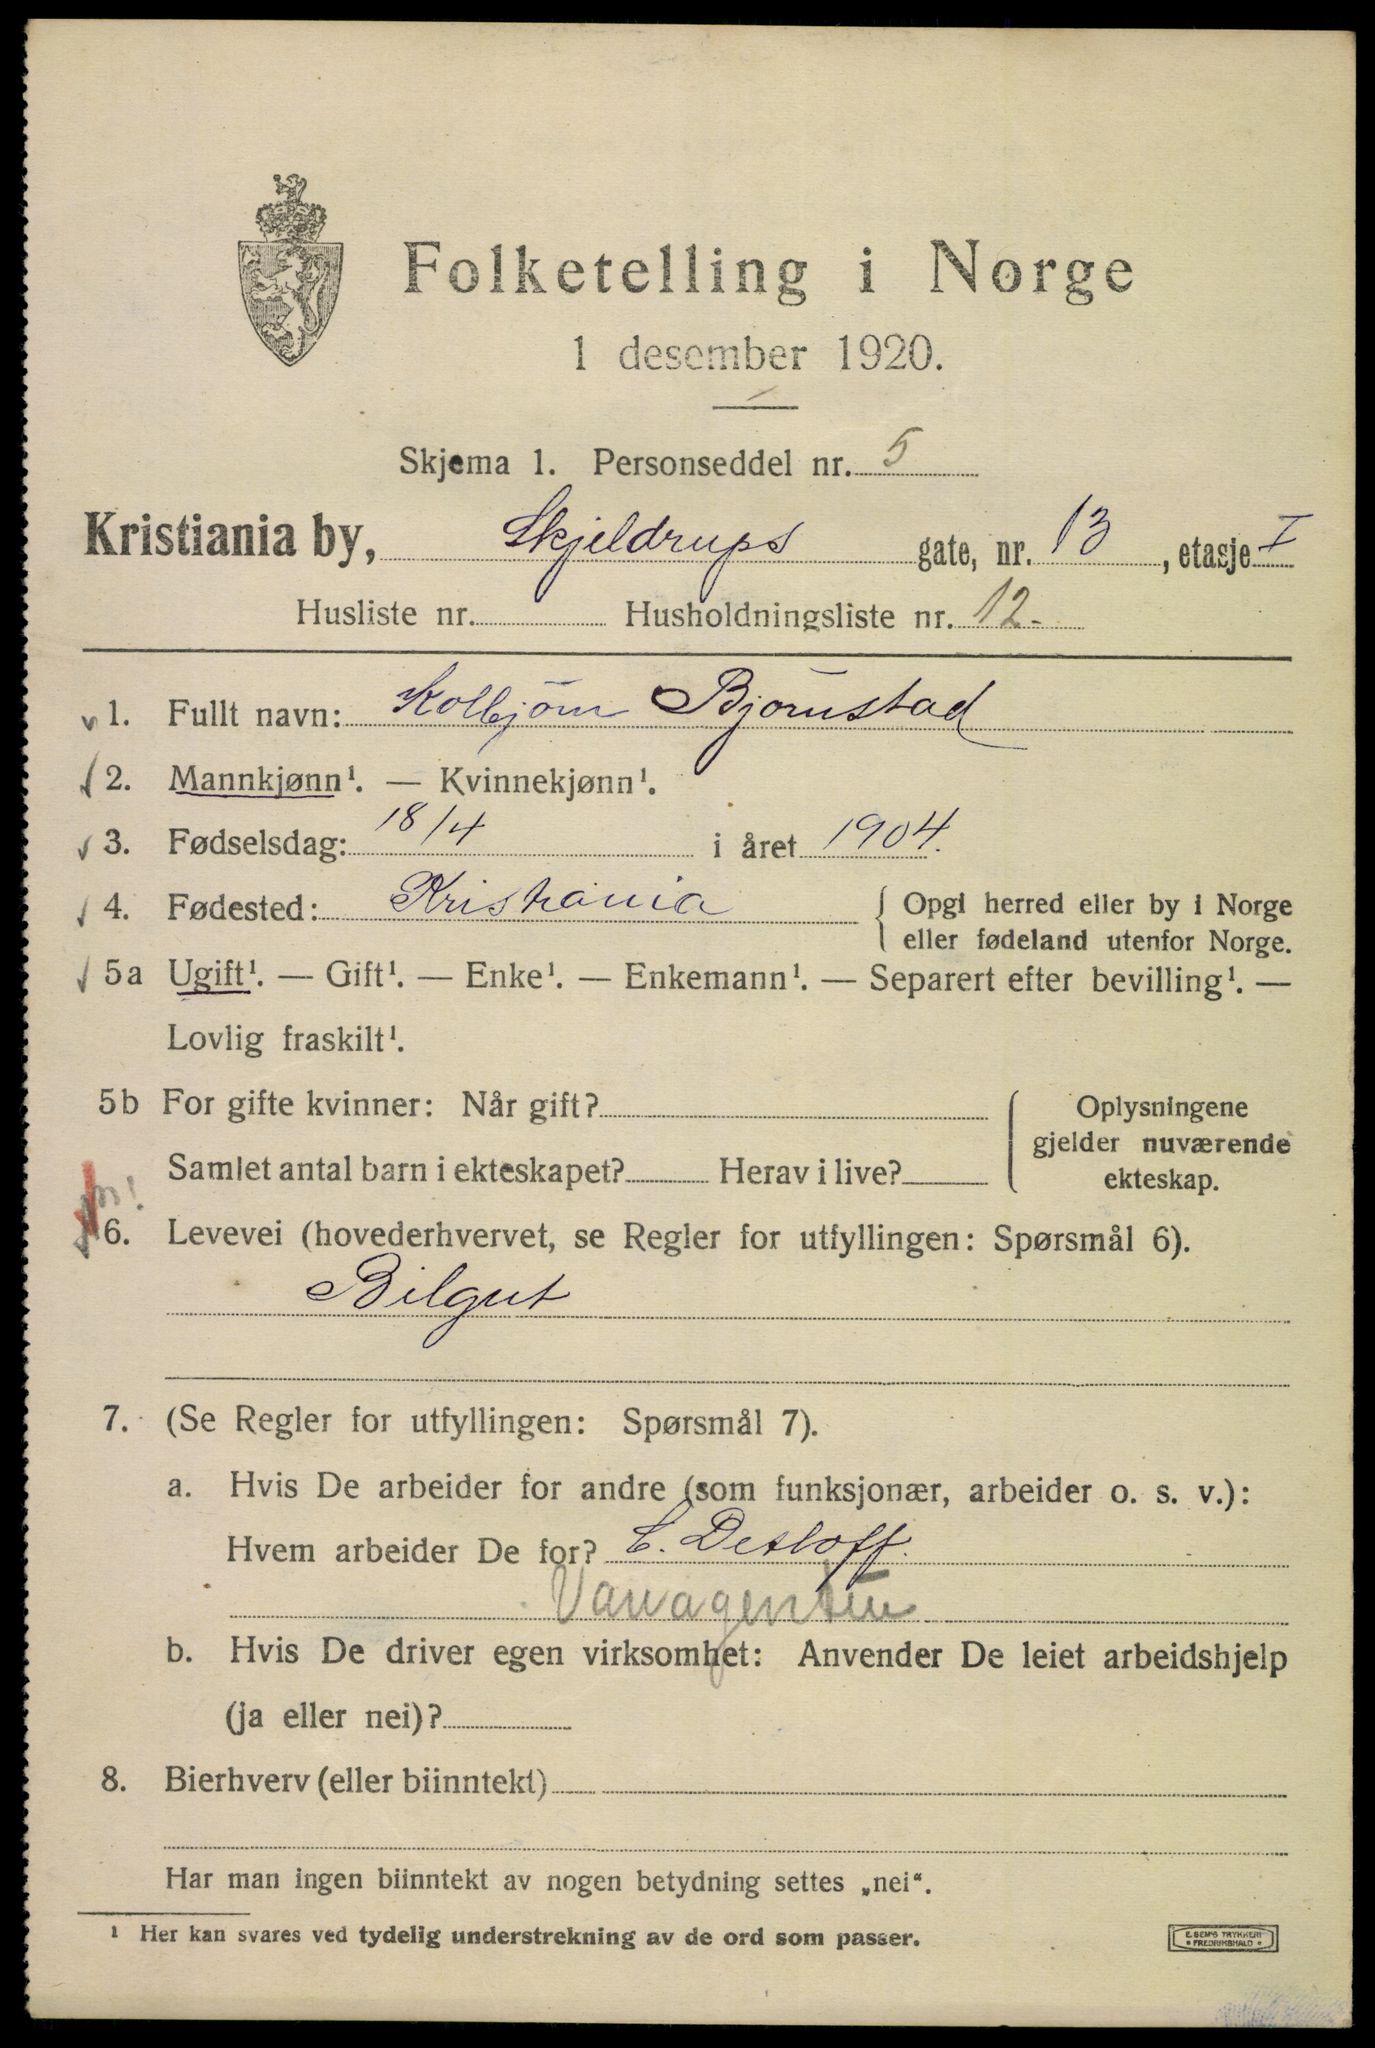 Folketelling i Norge
1 desember 1920.
Skjema 1. Personseddel nr. 5
Kristiania by, Skjeldrups gate, nr. 13, etasje I
Husliste nr. Husholdningsliste nr. 12.
1. Fullt navn: Kolbjörn Bjørnstad
2. Mannkjønn¹. — Kvinnekjønn¹.
3. Fødselsdag: 18/4 i året 1904.
4. Fødested: Kristiania { Opgi herred eller by i Norge
eller fødeland utenfor Norge.
5a Ugift¹. — Gift¹. — Enke¹. — Enkemann¹. — Separert efter bevilling¹. —
Lovlig fraskilt¹.
5b For gifte kvinner: Når gift?
Samlet antal barn i ekteskapet? Herav i live?
Oplysningene
gjelder nuværende
ekteskap.
6. Levevei (hovederhvervet, se Regler for utfyllingen: Spørsmål 6).
Bilgut
7. (Se Regler for utfyllingen: Spørsmål 7).
a. Hvis De arbeider for andre (som funksjonær, arbeider o. s. v.):
Hvem arbeider De for? C. Detloff.
b. Hvis De driver egen virksomhet: Anvender De leiet arbeidshjelp
(ja eller nei)?
8. Bierhverv (eller biinntekt)
Har man ingen biinntekt av nogen betydning settes „nei“.
¹ Her kan svares ved tydelig understrekning av de ord som passer.
E. SEM'S TRYKKERI
• FREDRIKSHALD •